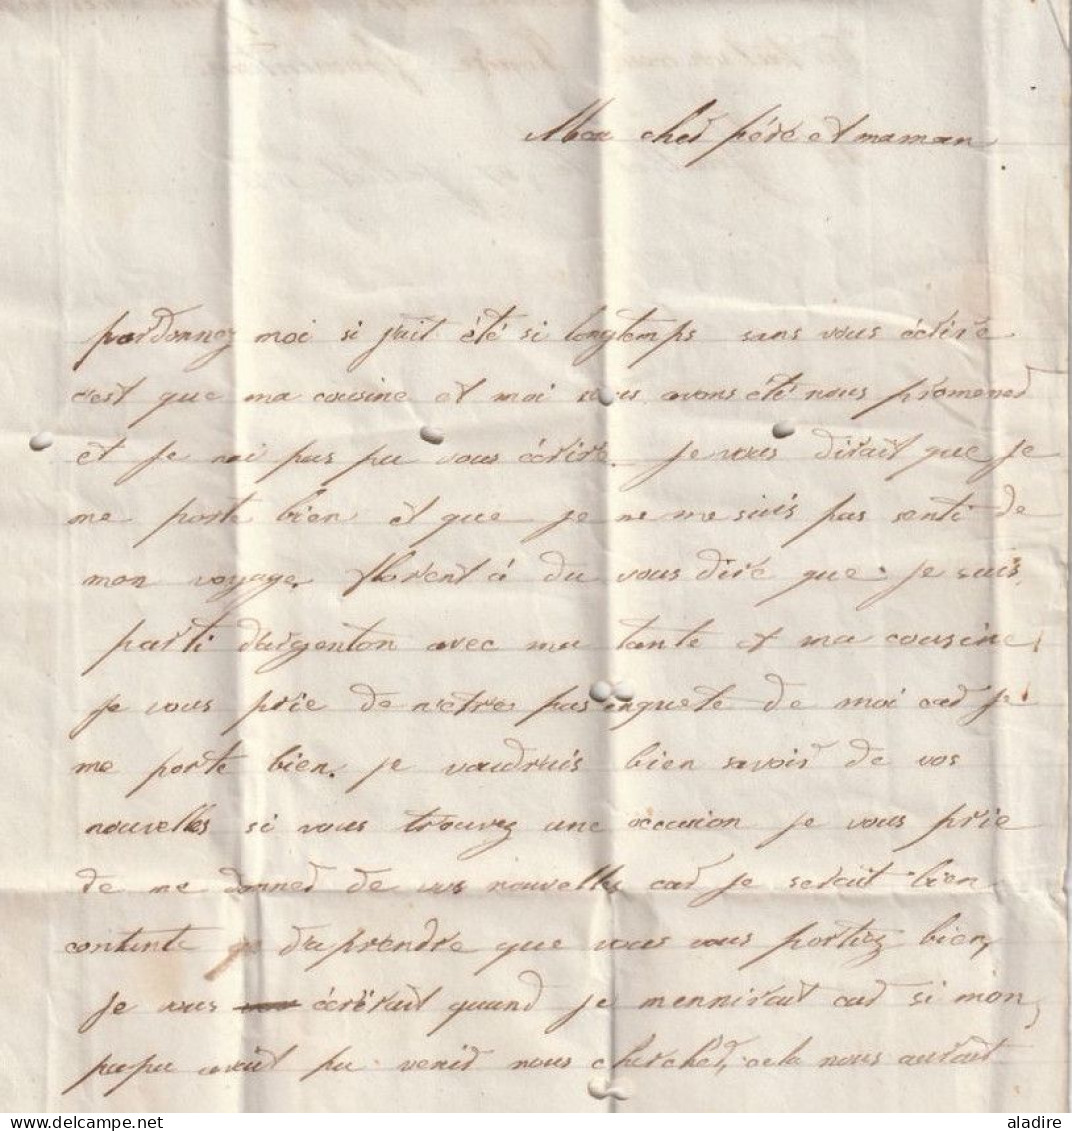 Mon cher père et maman
pardonnez moi si jait été si longtemps sans vous écrire
c'est que ma cousine et moi nous avons été nous promener
et je nai pas pu vous écrire. je vous dirait que je
me porte bien et que je ne me suis pas senti de
mon voyage. florent à du vous dire que je suis
parti d'argenton avec ma tante et ma cousine,
je vous prie de n'être pas inquete de moi car je
me porte bien. je voudrais bien savoir de vos
nouvelles si vous trouvez une occasion je vous prie
de me donner de vos nouvelles car je serait bien
contente d'aprendre que vous vous portiez bien,
je vous écrirait quand je mennirait car si mon,
papa avait pu venir nous chercher, cela nous aurait
aladire